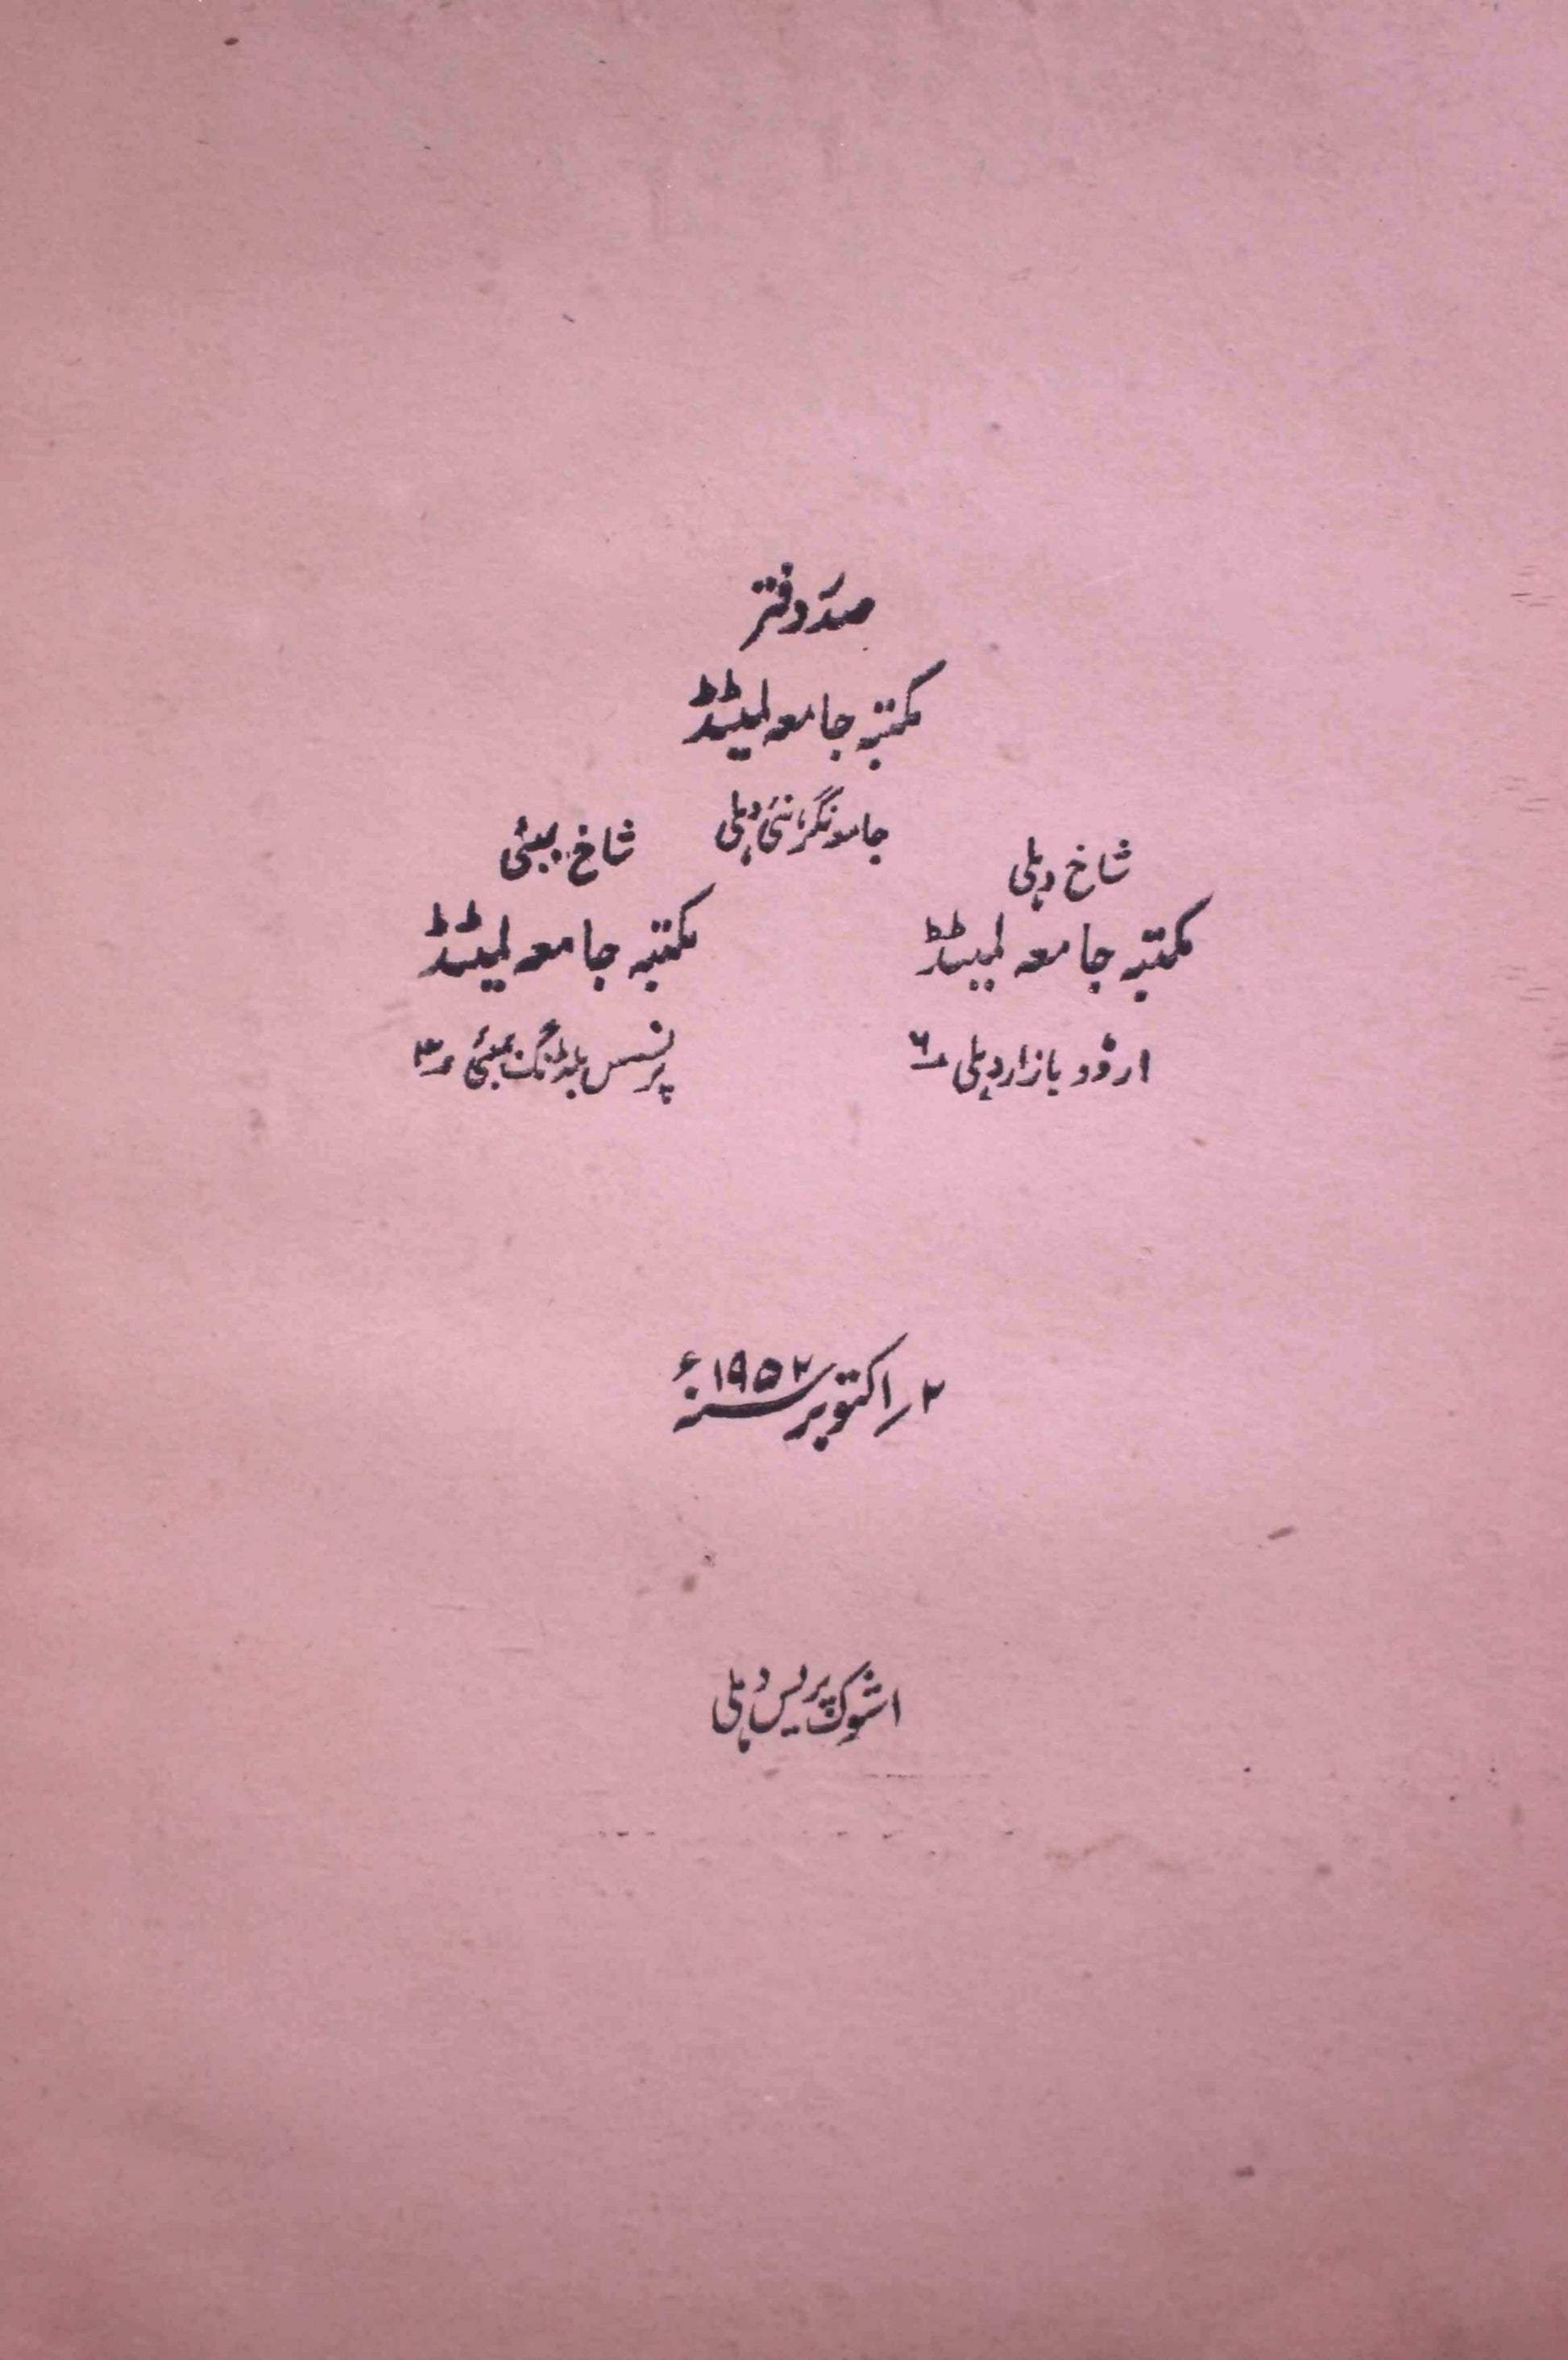 صدر دفتر
مکتبہ جامعہ لمیٹڈ
جامعہ نگر، نئی دہلی
شاخ دہلی
مکتبہ جامعہ لمیٹڈ
اردو بازار دہلی ۶
شاخ بمبئی
مکتبہ جامعہ لمیٹڈ
پرنسس بلڈنگ بمبئی ۳
۲؍اکتوبر ۱۹۵۲ سنہء
اشوک پریس دہلی